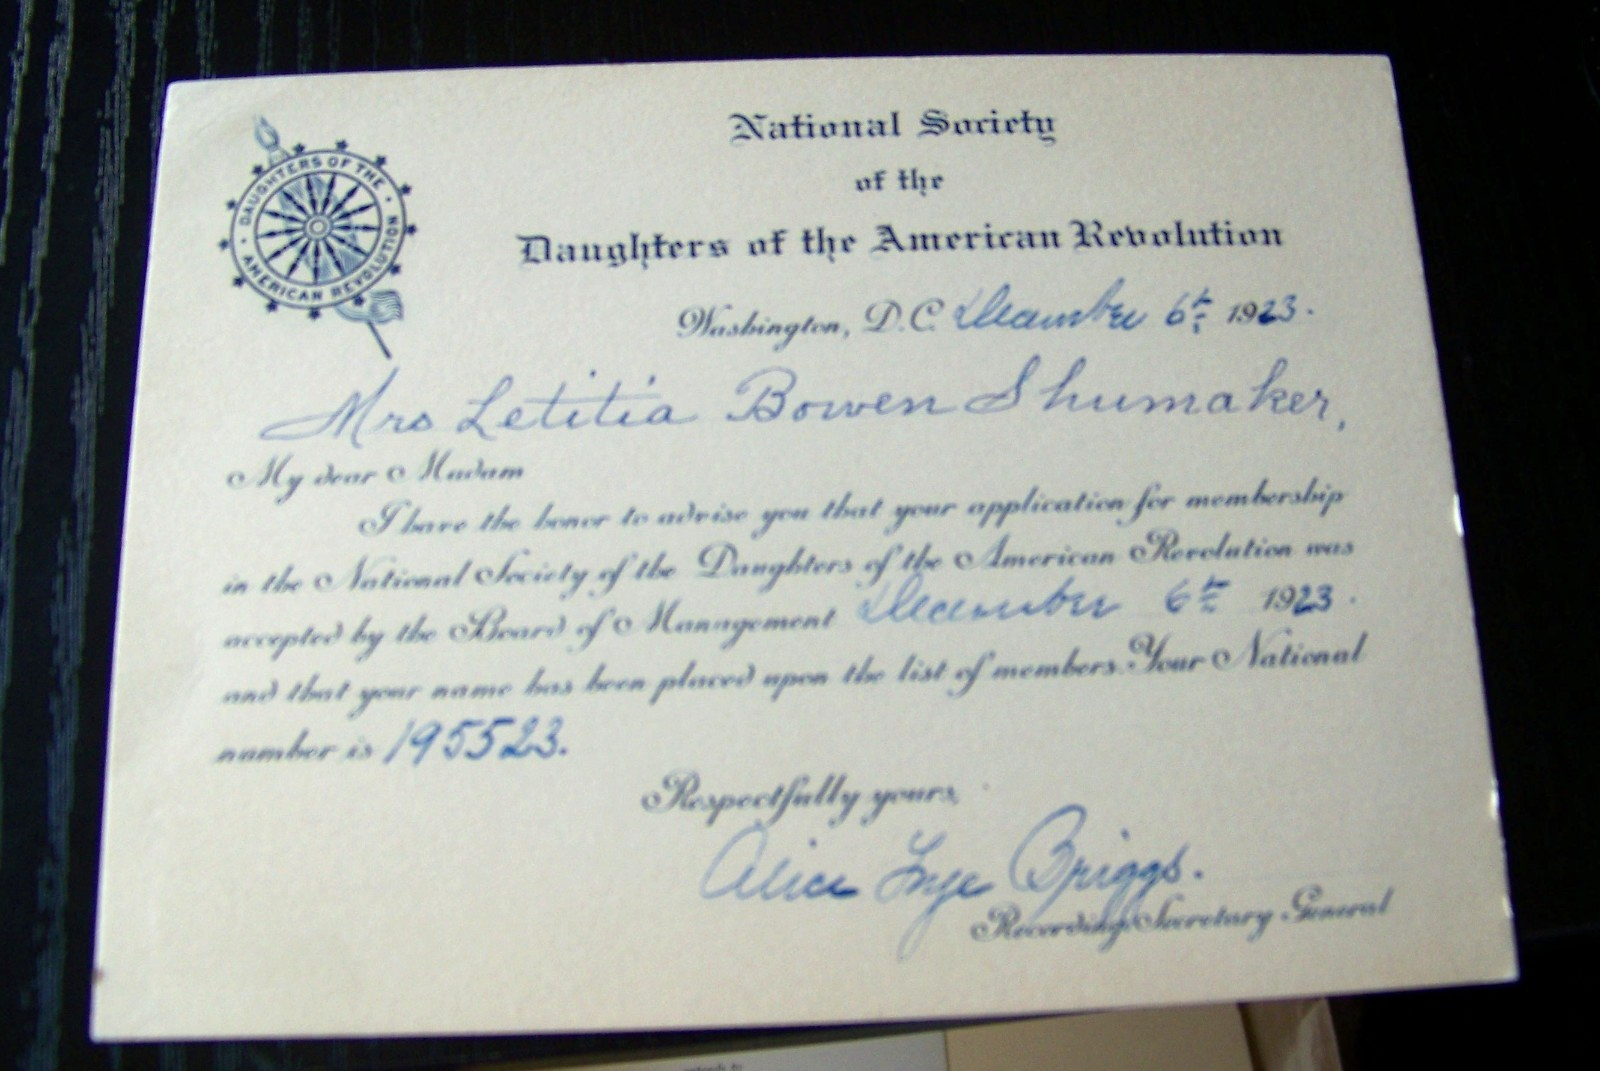 DAUGHTERS OF THE
AMERICAN REVOLUTION
National Society
of the
Daughters of the American Revolution
Washington, D.C. December 6th 1923.
Mrs Letitia Bowen Shumaker,
My dear Madam
I have the honor to advise you that your application for membership
in the National Society of the Daughters of the American Revolution was
accepted by the Board of Management December 6th 1923.
and that your name has been placed upon the list of members. Your National
number is 195523.
Respectfully yours,
Alice Frye Briggs.
Recording Secretary General